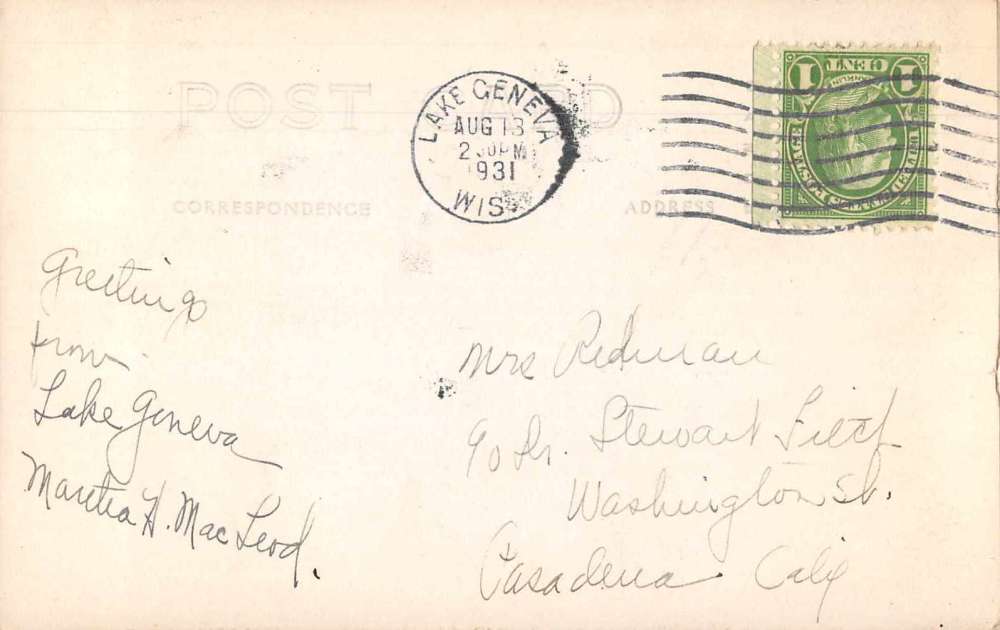 POST CARD
LAKE GENEVA
AUG 13
2 30 PM
1931
WIS.
1 CENT 1
FRANKLIN
UNITED STATES POSTAGE
CORRESPONDENCE
ADDRESS
Greetings
from
Lake Geneva
Martha H. MacLeod.
Mrs Redman
℅ Dr. Stewart
Washington St.
Pasadena Calif